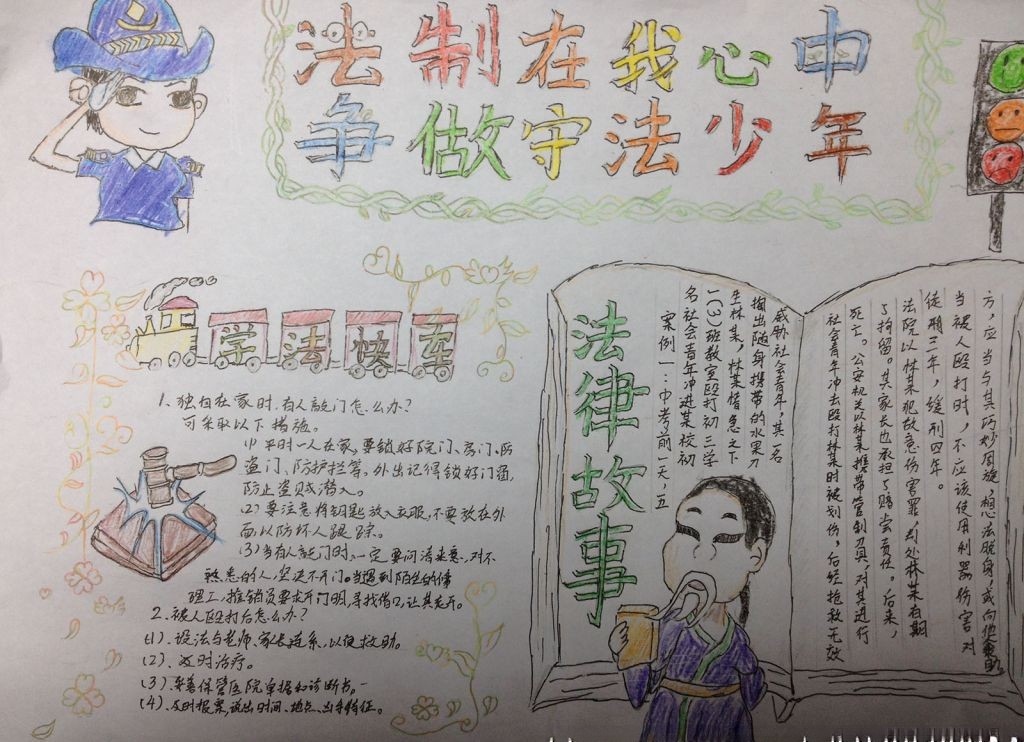 法制在我心中
争做守法少年
学法快车
1、独自在家时,有人敲门怎么办?
可采取以下措施。
(1)平时一人在家,要锁好院门、房门、防
盗门、防护拦等。外出记得锁好门窗,
防止盗贼潜入。
(2)要注意将钥匙放入衣服,不要放在外
面以防坏人跟踪。
(3)当有人敲门时,一定要问清来意,对不
熟悉的人,坚决不开门。当遇到陌生的修
理工,推销员要求开门时,寻找借口,让其走开。
2、被人殴打后怎么办?
(1)、设法与老师、家长连系,以便救助。
(2)、及时治疗。
(3)、妥善保管医院单据和诊断书。
(4)、及时报案,说出时间、地点、凶手特征。
法律故事
案例一:中考前一天,五
名社会青年冲进某校初
一(3)班教室殴打初三学
生林某,林某情急之下
掏出随身携带的水果刀
威胁社会青年,其一名
社会青年冲击殴打林某时被划伤,后经抢救无效
死亡。公安机关以林某携带管制刀具对其进行
了拘留。其家长也承担了赔卖责任。后来,
法院以林某犯故意伤害罪,判处林某有期
徒刑三年,缓刑四年。
当被人殴打时,不应该使用利器伤害对
方,应当与其巧妙周旋,想法脱身,或向他